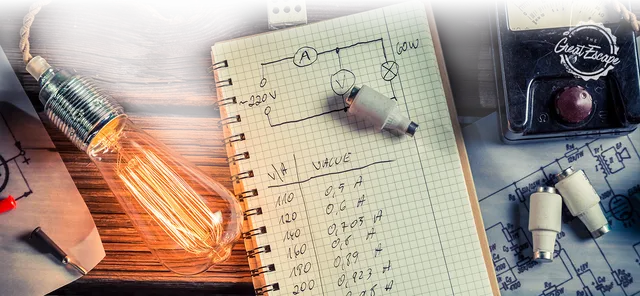 THE
Great Escape
A
60W
V
~220V
V/A VALUE
110 0,5 A
120 0,6 A
140 0,703 A
160 0,8 A
180 0,89 A
200 0,923 A